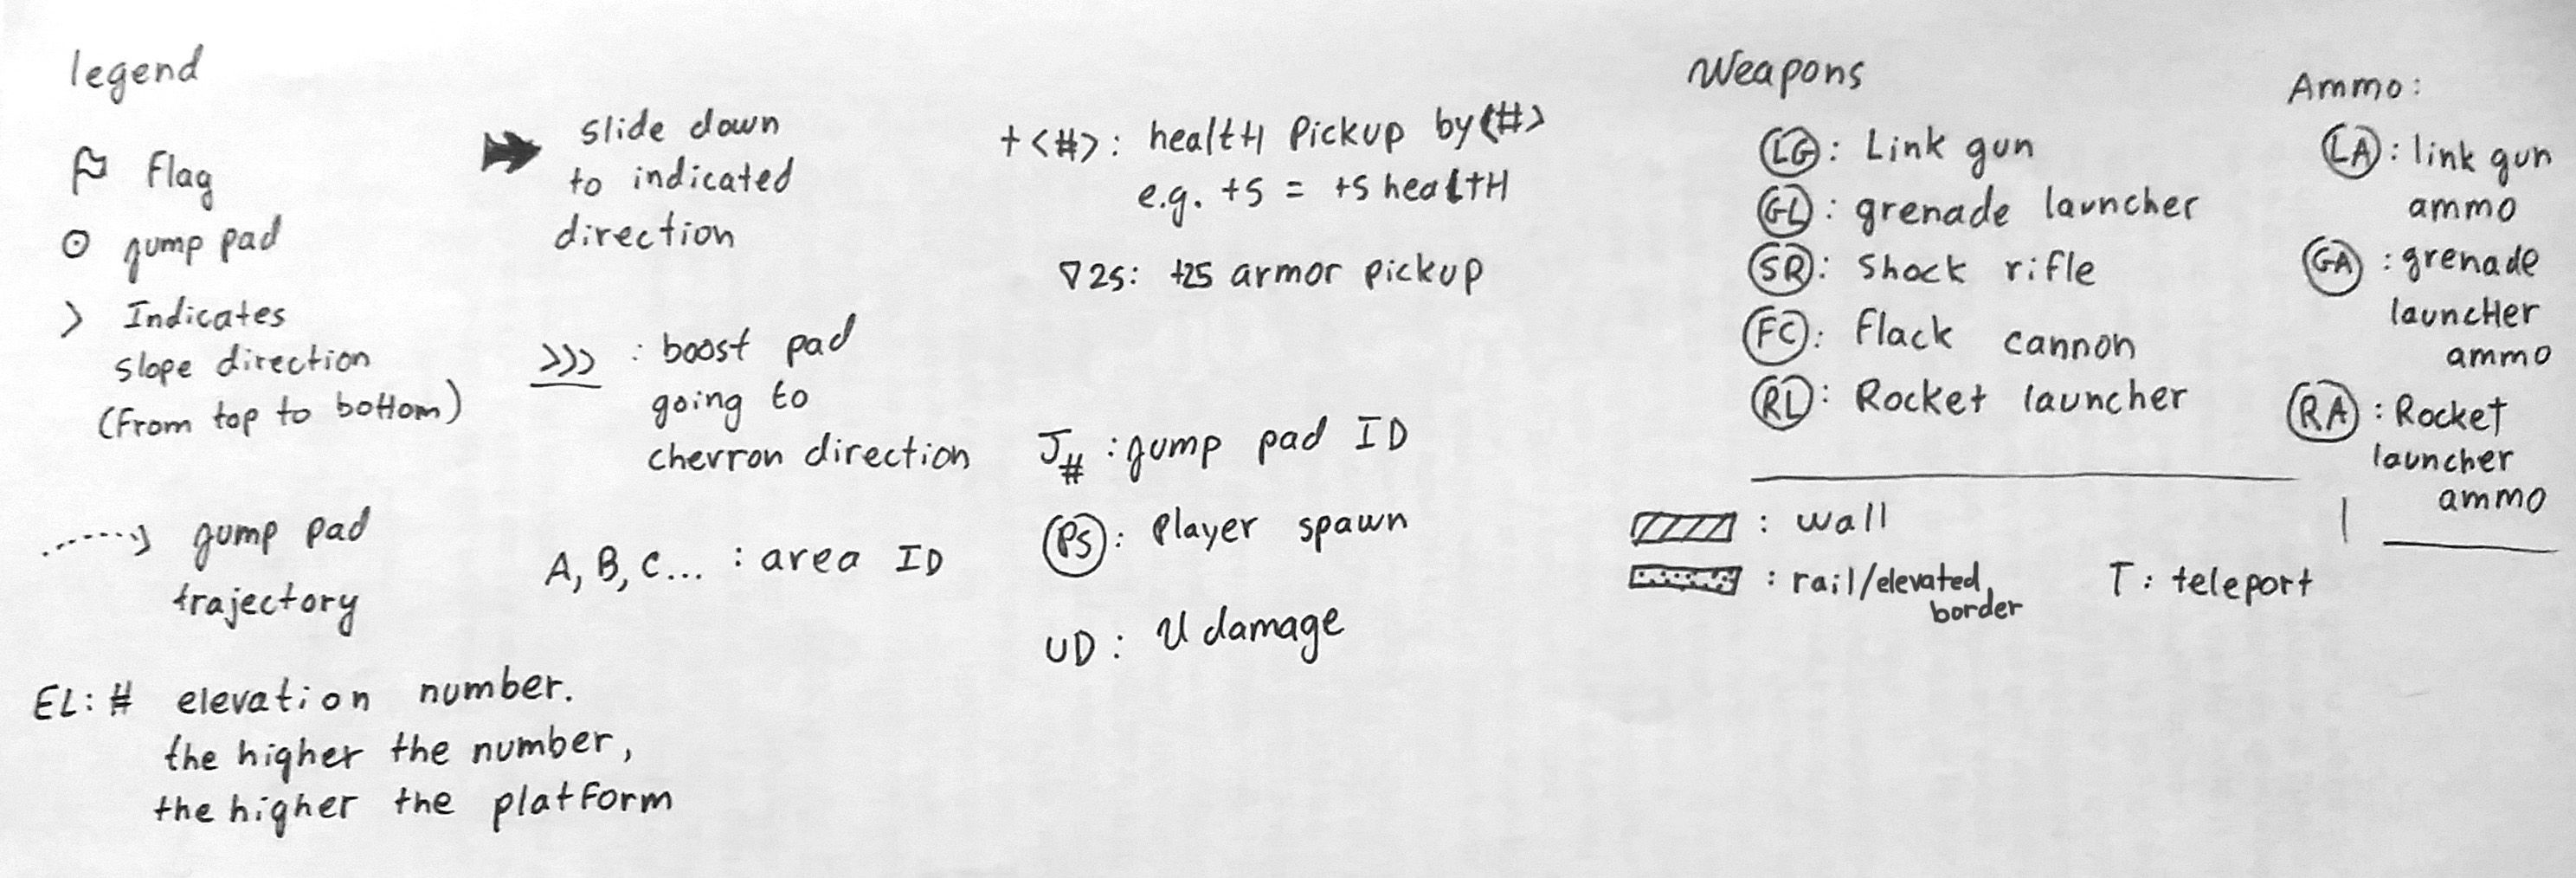 legend
Flag
jump pad
> Indicates
slope direction
(From top to bottom)
jump pad
trajectory
EL: # elevation number.
the higher the number,
the higher the platform
slide down
to indicated
direction
>>> : boost pad
going to
chevron direction
A, B, C... : area ID
+<#>: healtH Pickup by<#>
e.g. +5 = +5 healtH
∇25: +25 armor pickup
J# : jump pad ID
PS: Player spawn
UD: U damage
Weapons
LG: Link gun
GL: grenade launcher
SR: Shock rifle
FC: Flack cannon
RL: Rocket launcher
: wall
: rail/elevated
border
T: teleport
Ammo:
LA: link gun
ammo
GA: grenade
launcHer
ammo
RA: Rocket
launcher
ammo